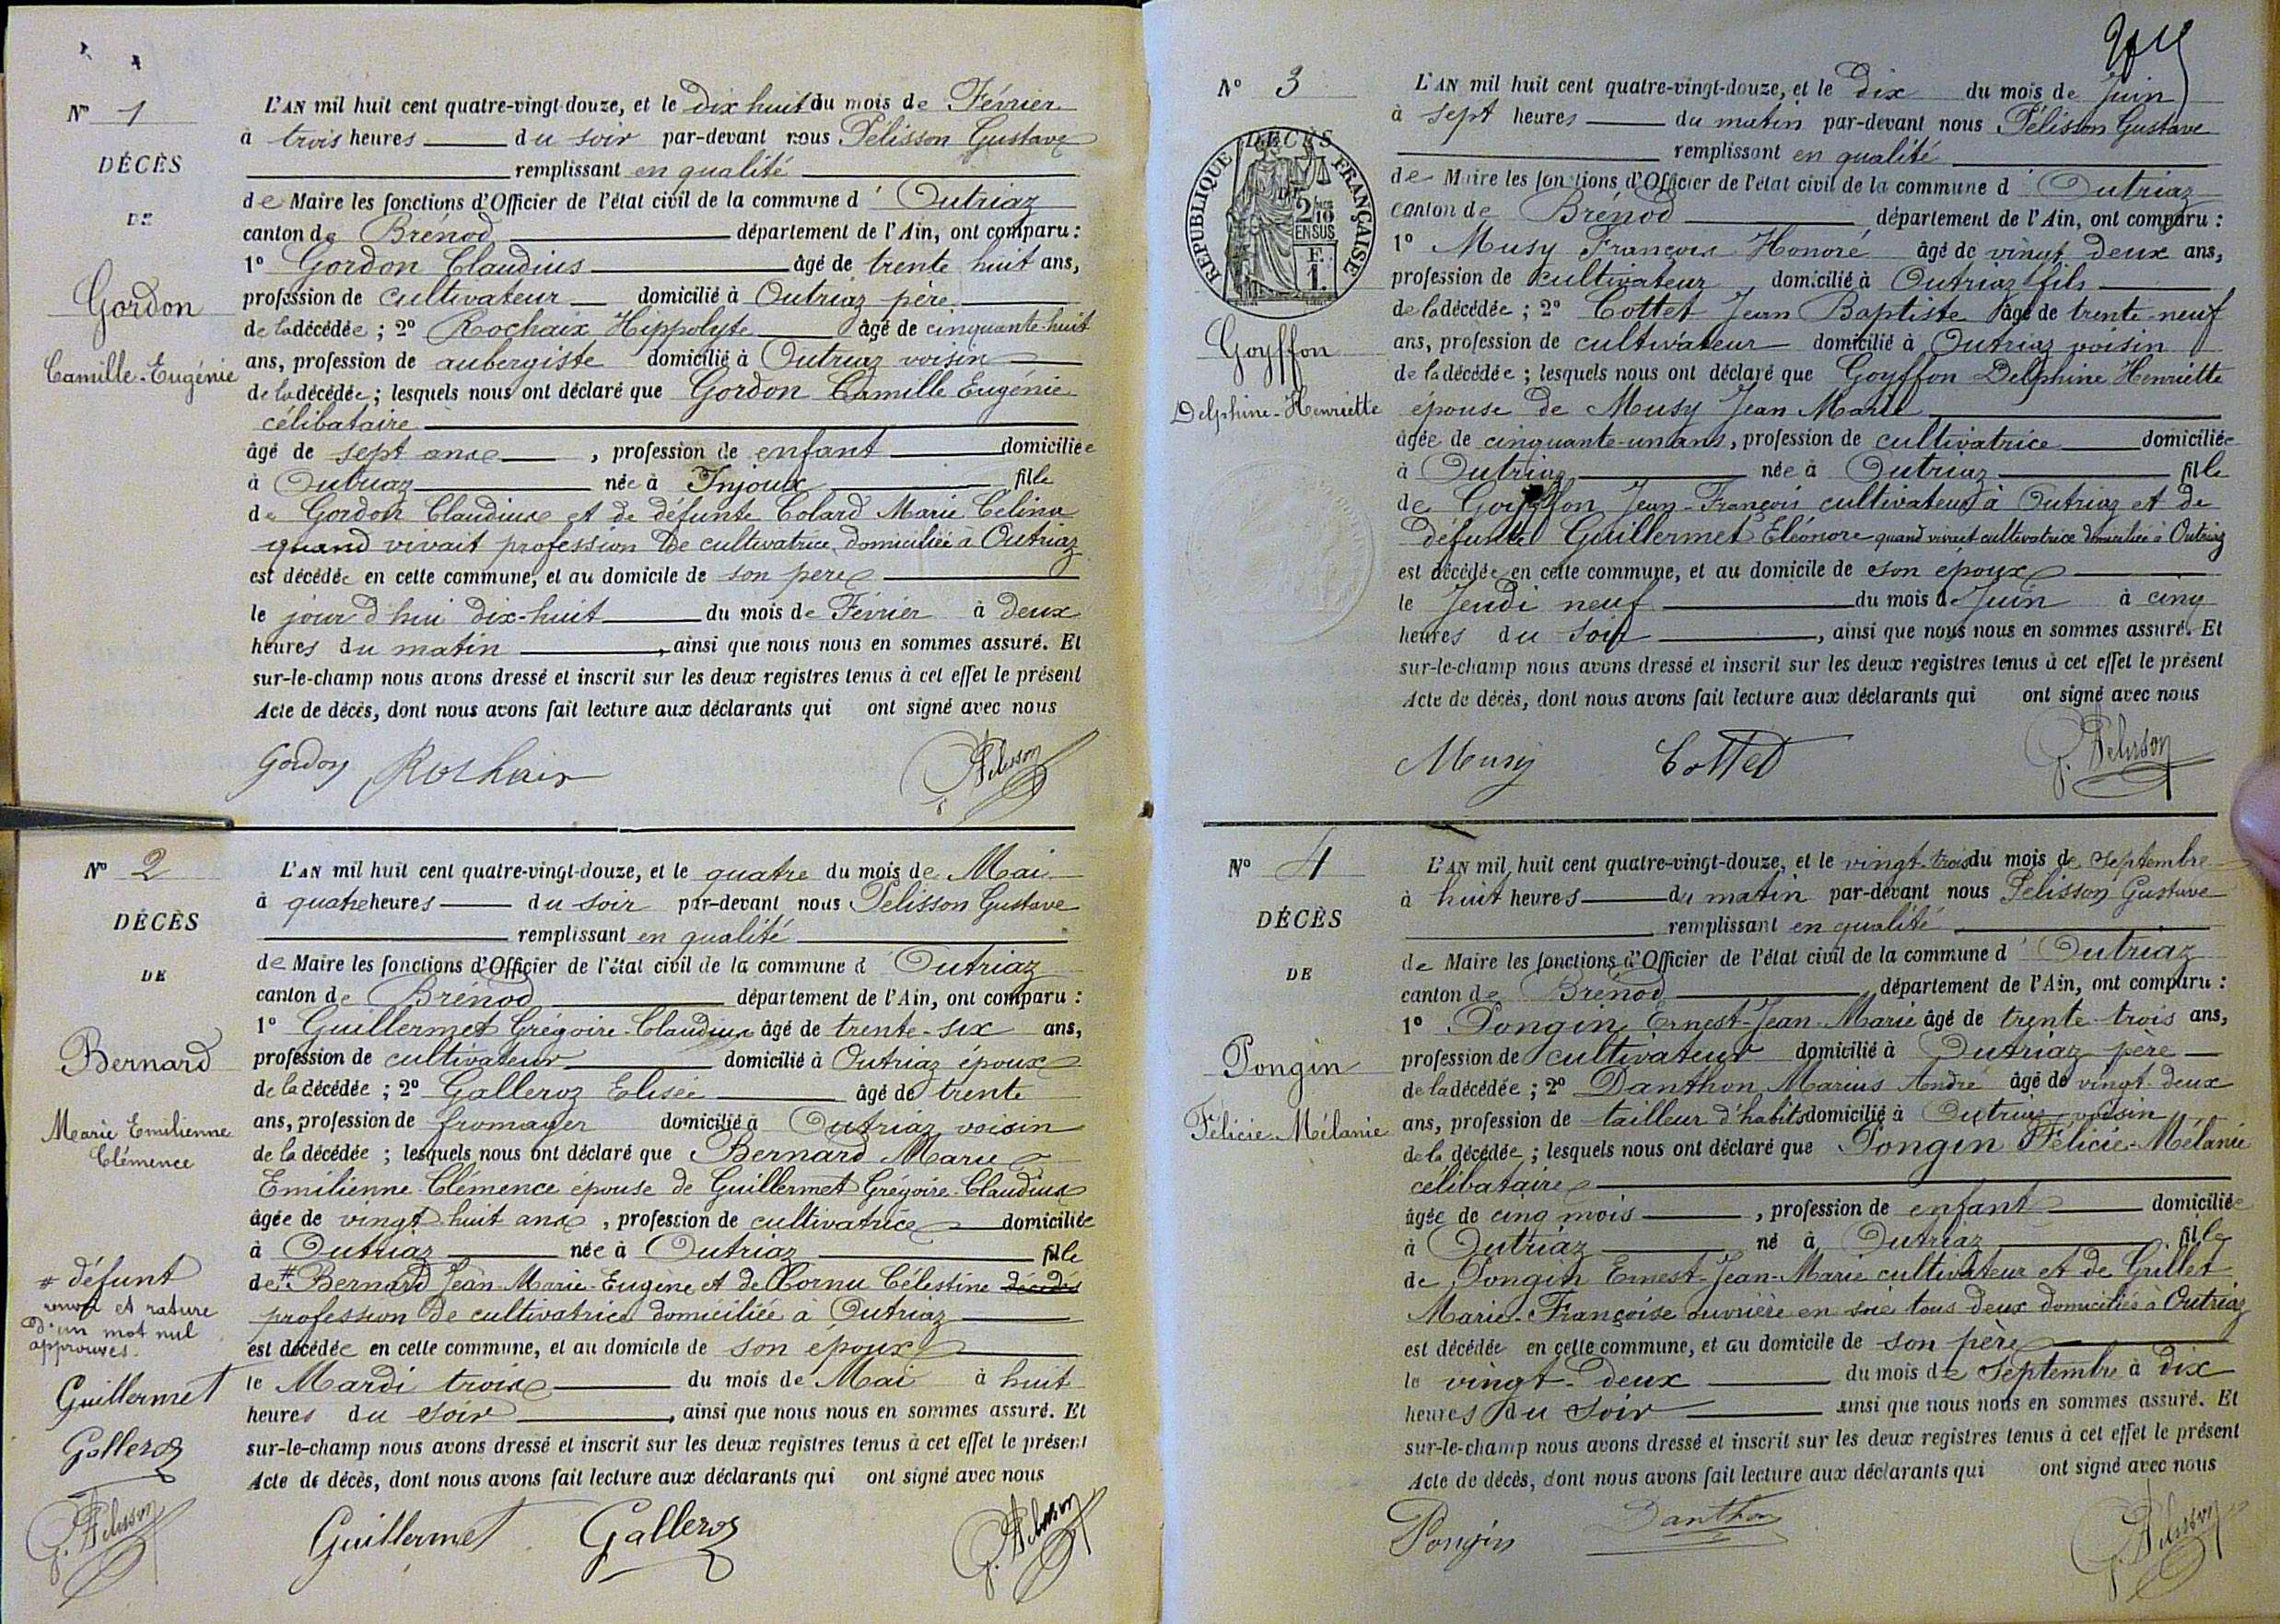 N° 1
DÉCÈS
DE
Gordon
Camille-Eugénie
L'AN mil huit cent quatre-vingt-douze, et le dix huit du mois de Février
à trois heures du soir par-devant nous Pélisson Gustave
remplissant en qualité
de Maire les fonctions d'Officier de l'état civil de la commune d'Outriaz
canton de Brénod département de l'Ain, ont comparu :
1° Gordon Claudius âgé de trente huit ans,
profession de cultivateur domicilié à Outriaz père
de la décédée ; 2° Rochaix Hippolyte âgé de cinquante-huit
ans, profession de aubergiste domicilié à Outriaz voisin
de la décédée ; lesquels nous ont déclaré que Gordon Camille Eugénie
célibataire
âgé de sept ans, profession de enfant domiciliée
à Outriaz née à Injoux fille
de Gordon Claudius et de défunte Colard Marie Célina
quand vivait profession de cultivatrice, domiciliée à Outriaz
est décédée en cette commune, et au domicile de son père
le jour d'hui dix-huit du mois de Février à deux
heures du matin, ainsi que nous nous en sommes assuré. Et
sur-le-champ nous avons dressé et inscrit sur les deux registres tenus à cet effet le présent
Acte de décès, dont nous avons fait lecture aux déclarants qui ont signé avec nous
Gordon Rochaix G. Pelisson
N° 2
DÉCÈS
DE
Bernard
Marie Emilienne
Clémence
# défunt
renvoi et rature
d'un mot nul
approuvés.
Guillermet
Galleroz
G. Pelisson
L'AN mil huit cent quatre-vingt-douze, et le quatre du mois de Mai
à quatre heures du soir par-devant nous Pelisson Gustave
remplissant en qualité
de Maire les fonctions d'Officier de l'état civil de la commune d'Outriaz
canton de Brénod département de l'Ain, ont comparu :
1° Guillermet Grégoire-Claudius âgé de trente-six ans,
profession de cultivateur domicilié à Outriaz époux
de la décédée ; 2° Galleroz Elisée âgé de trente
ans, profession de fromager domicilié à Outriaz voisin
de la décédée ; lesquels nous ont déclaré que Bernard Marie
Emilienne-Clémence épouse de Guillermet Grégoire-Claudius
âgée de vingt-huit ans, profession de cultivatrice domiciliée
à Outriaz née à Outriaz fille
de # Bernard Jean-Marie-Eugène et de Cornu Célestine décédés
profession de cultivatrice domiciliée à Outriaz
est décédée en cette commune, et au domicile de son époux
le Mardi trois du mois de Mai à huit
heures du soir, ainsi que nous nous en sommes assuré. Et
sur-le-champ nous avons dressé et inscrit sur les deux registres tenus à cet effet le présent
Acte de décès, dont nous avons fait lecture aux déclarants qui ont signé avec nous
Guillermet Galleroz G. Pelisson
N° 3
DÉCÈS
RÉPUBLIQUE FRANÇAISE
2/10 EN SUS
F. 1.
Goyffon
Delphine-Henriette
L'AN mil huit cent quatre-vingt-douze, et le dix du mois de Juin
à sept heures du matin par-devant nous Pélisson Gustave
remplissant en qualité
de Maire les fonctions d'Officier de l'état civil de la commune d'Outriaz
canton de Brénod département de l'Ain, ont comparu :
1° Musy François Honoré âgé de vingt deux ans,
profession de cultivateur domicilié à Outriaz fils
de la décédée ; 2° Cottet Jean Baptiste âgé de trente-neuf
ans, profession de cultivateur domicilié à Outriaz voisin
de la décédée ; lesquels nous ont déclaré que Goyffon Delphine Henriette
épouse de Musy Jean Marie
âgée de cinquante-un ans, profession de cultivatrice domiciliée
à Outriaz née à Outriaz fille
de Goyffon Jean-François cultivateur à Outriaz et de
défunte Guillermet Eléonore quand vivait cultivatrice domiciliée à Outriaz
est décédée en cette commune, et au domicile de son époux
le Jeudi neuf du mois de Juin à cinq
heures du soir, ainsi que nous nous en sommes assuré. Et
sur-le-champ nous avons dressé et inscrit sur les deux registres tenus à cet effet le présent
Acte de décès, dont nous avons fait lecture aux déclarants qui ont signé avec nous
Musy Cottet G. Pelisson
N° 4
DÉCÈS
DE
Pongin
Félicie-Mélanie
L'AN mil huit cent quatre-vingt-douze, et le vingt-trois du mois de Septembre
à huit heures du matin par-devant nous Pelisson Gustave
remplissant en qualité
de Maire les fonctions d'Officier de l'état civil de la commune d'Outriaz
canton de Brénod département de l'Ain, ont comparu :
1° Pongin Ernest-Jean-Marie âgé de trente-trois ans,
profession de cultivateur domicilié à Outriaz père
de la décédée ; 2° Danthon Marius André âgé de vingt-deux
ans, profession de tailleur d'habits domicilié à Outriaz voisin
de la décédée ; lesquels nous ont déclaré que Pongin Félicie-Mélanie
célibataire
âgée de cinq mois, profession de enfant domiciliée
à Outriaz né à Outriaz fille
de Pongin Ernest-Jean-Marie cultivateur et de Grillet
Marie-Françoise ouvrière en soie tous deux domiciliés à Outriaz
est décédée en cette commune, et au domicile de son père
le vingt-deux du mois de Septembre à dix
heures du soir ainsi que nous nous en sommes assuré. Et
sur-le-champ nous avons dressé et inscrit sur les deux registres tenus à cet effet le présent
Acte de décès, dont nous avons fait lecture aux déclarants qui ont signé avec nous
Pongin Danthon G. Pelisson